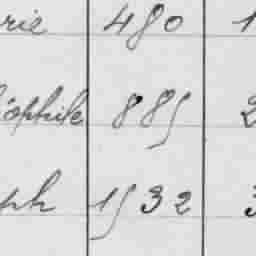 rie 480 1
éophile 885 2
ph 1532 3